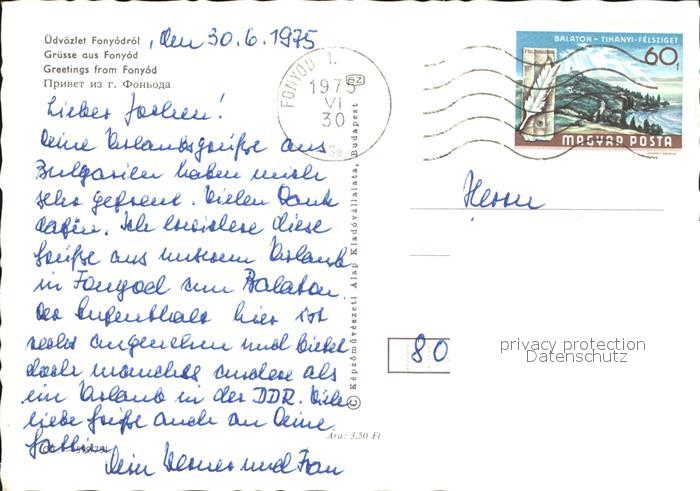 Üdvözlet Fonyódról , den 30.6.1975
Grüsse aus Fonyód
Greetings from Fonyód
Привет из г. Фоньода
Lieber Jochen!
Deine Urlaubsgrüße aus
Bulgarien haben mich
sehr gefreut. Vielen Dank
dafür. Ich erwidere diese
Grüße aus unserem Urlaub
in Fonyod am Balaton.
Der Aufenthalt hier ist
recht angenehm und bietet
doch manches andere als
ein Urlaub in der DDR. Viele
liebe Grüße auch an Deine
Gattin
Dein Werner und Frau
Ára: 3,50 Ft
© Képzőművészeti Alap Kiadóvállalata, Budapest
FONYÓD 1.
1975
VI
30
BALATON - TIHANYI-FÉLSZIGET
60f
MAGYAR POSTA
Herrn
80
privacy protection
Datenschutz